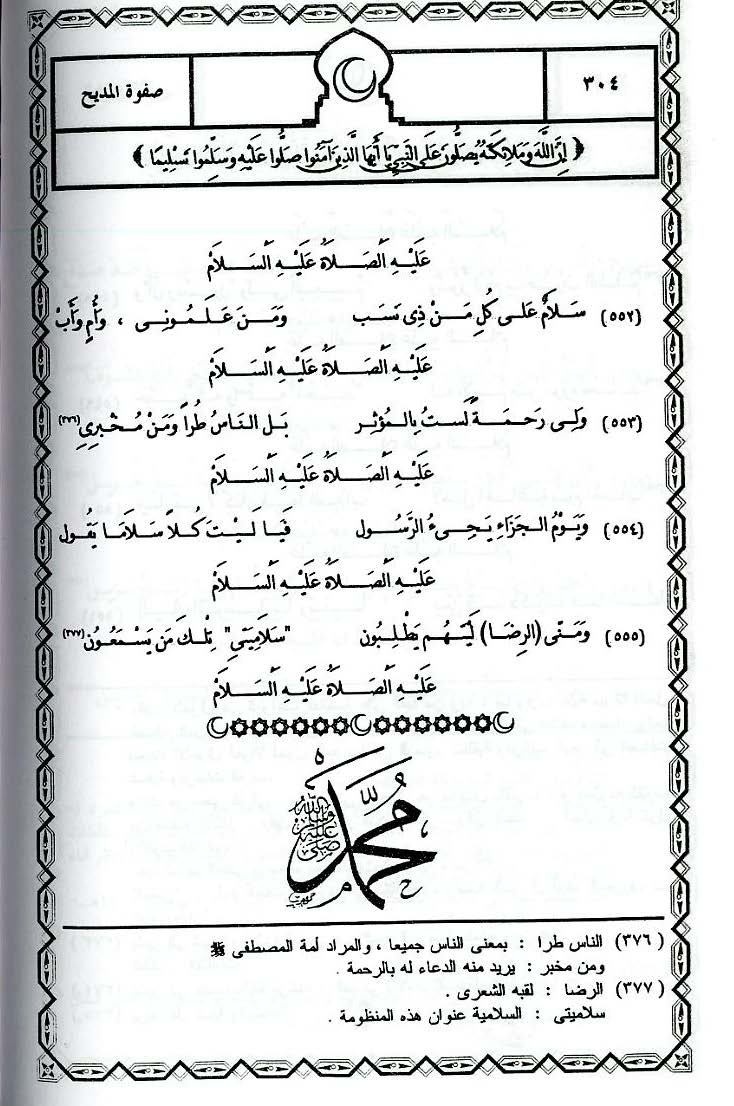 ٣٠٤
صفوة المديح
﴿ إِنَّ اللَّهَ وَمَلَائِكَتَهُ يُصَلُّونَ عَلَى النَّبِيِّ يَا أَيُّهَا الَّذِينَ آمَنُوا صَلُّوا عَلَيْهِ وَسَلِّمُوا تَسْلِيمًا ﴾
عَلَيْهِ الصَّلَاةُ عَلَيْهِ السَّلَامْ
(٥٥٢) سَلَامٌ عَلَى كُلِّ مَنْ ذِى نَسَب وَمَن عَلَّمُونِى ، وَأُمٍ وَأَبْ
عَلَيْهِ الصَّلَاةُ عَلَيْهِ السَّلَامْ
(٥٥٣) وَلِى رَحْمَةً لَسْتُ بِالمُؤثِر بَلِ النَّاسُ طُراً وَمَنْ مُخْبِرِى (٣٧٦)
عَلَيْهِ الصَّلَاةُ عَلَيْهِ السَّلَامْ
(٥٥٤) وَيَوْمُ الجَزَاءِ يَجِىءُ الرَّسُول فَيَا لَيْتَ كُلاً سَلَامَا يَقُول
عَلَيْهِ الصَّلَاةُ عَلَيْهِ السَّلَامْ
(٥٥٥) وَمَتَى (الرِضَا) لَيْتَهُم يَطْلِبُون "سَلَامِيَتِي" تِلْكَ مَن يَسْمَعُوُن (٣٧٧)
عَلَيْهِ الصَّلَاةُ عَلَيْهِ السَّلَامْ
محمد
صلى الله عليه وآله وسلم
(٣٧٦) الناس طرا : بمعنى الناس جميعا ، والمراد أمة المصطفى ﷺ
ومن مخبر : يريد منه الدعاء له بالرحمة .
(٣٧٧) الرضا : لقبه الشعرى .
سلاميتى : السلامية عنوان هذه المنظومة .